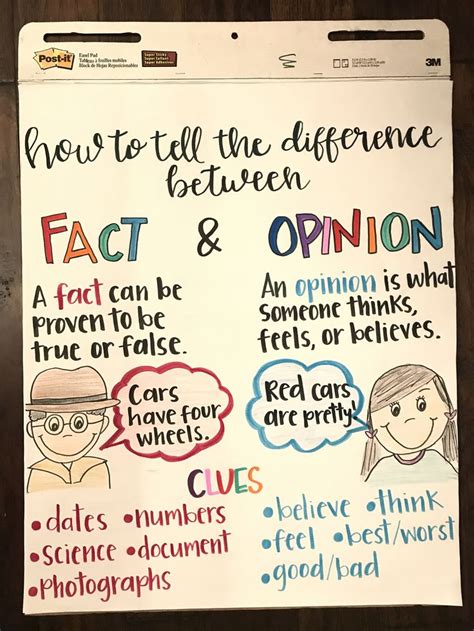 Post-it
Easel Pad
Super Sticky
3M
how to tell the difference
between
FACT & OPINION
A fact can be
proven to be
true or false.
An opinion is what
someone thinks,
feels, or believes.
Cars
have four
wheels.
Red cars
are pretty!
CLUES
•dates •numbers
•science •document
•photographs
•believe •think
•feel •best/worst
•good/bad